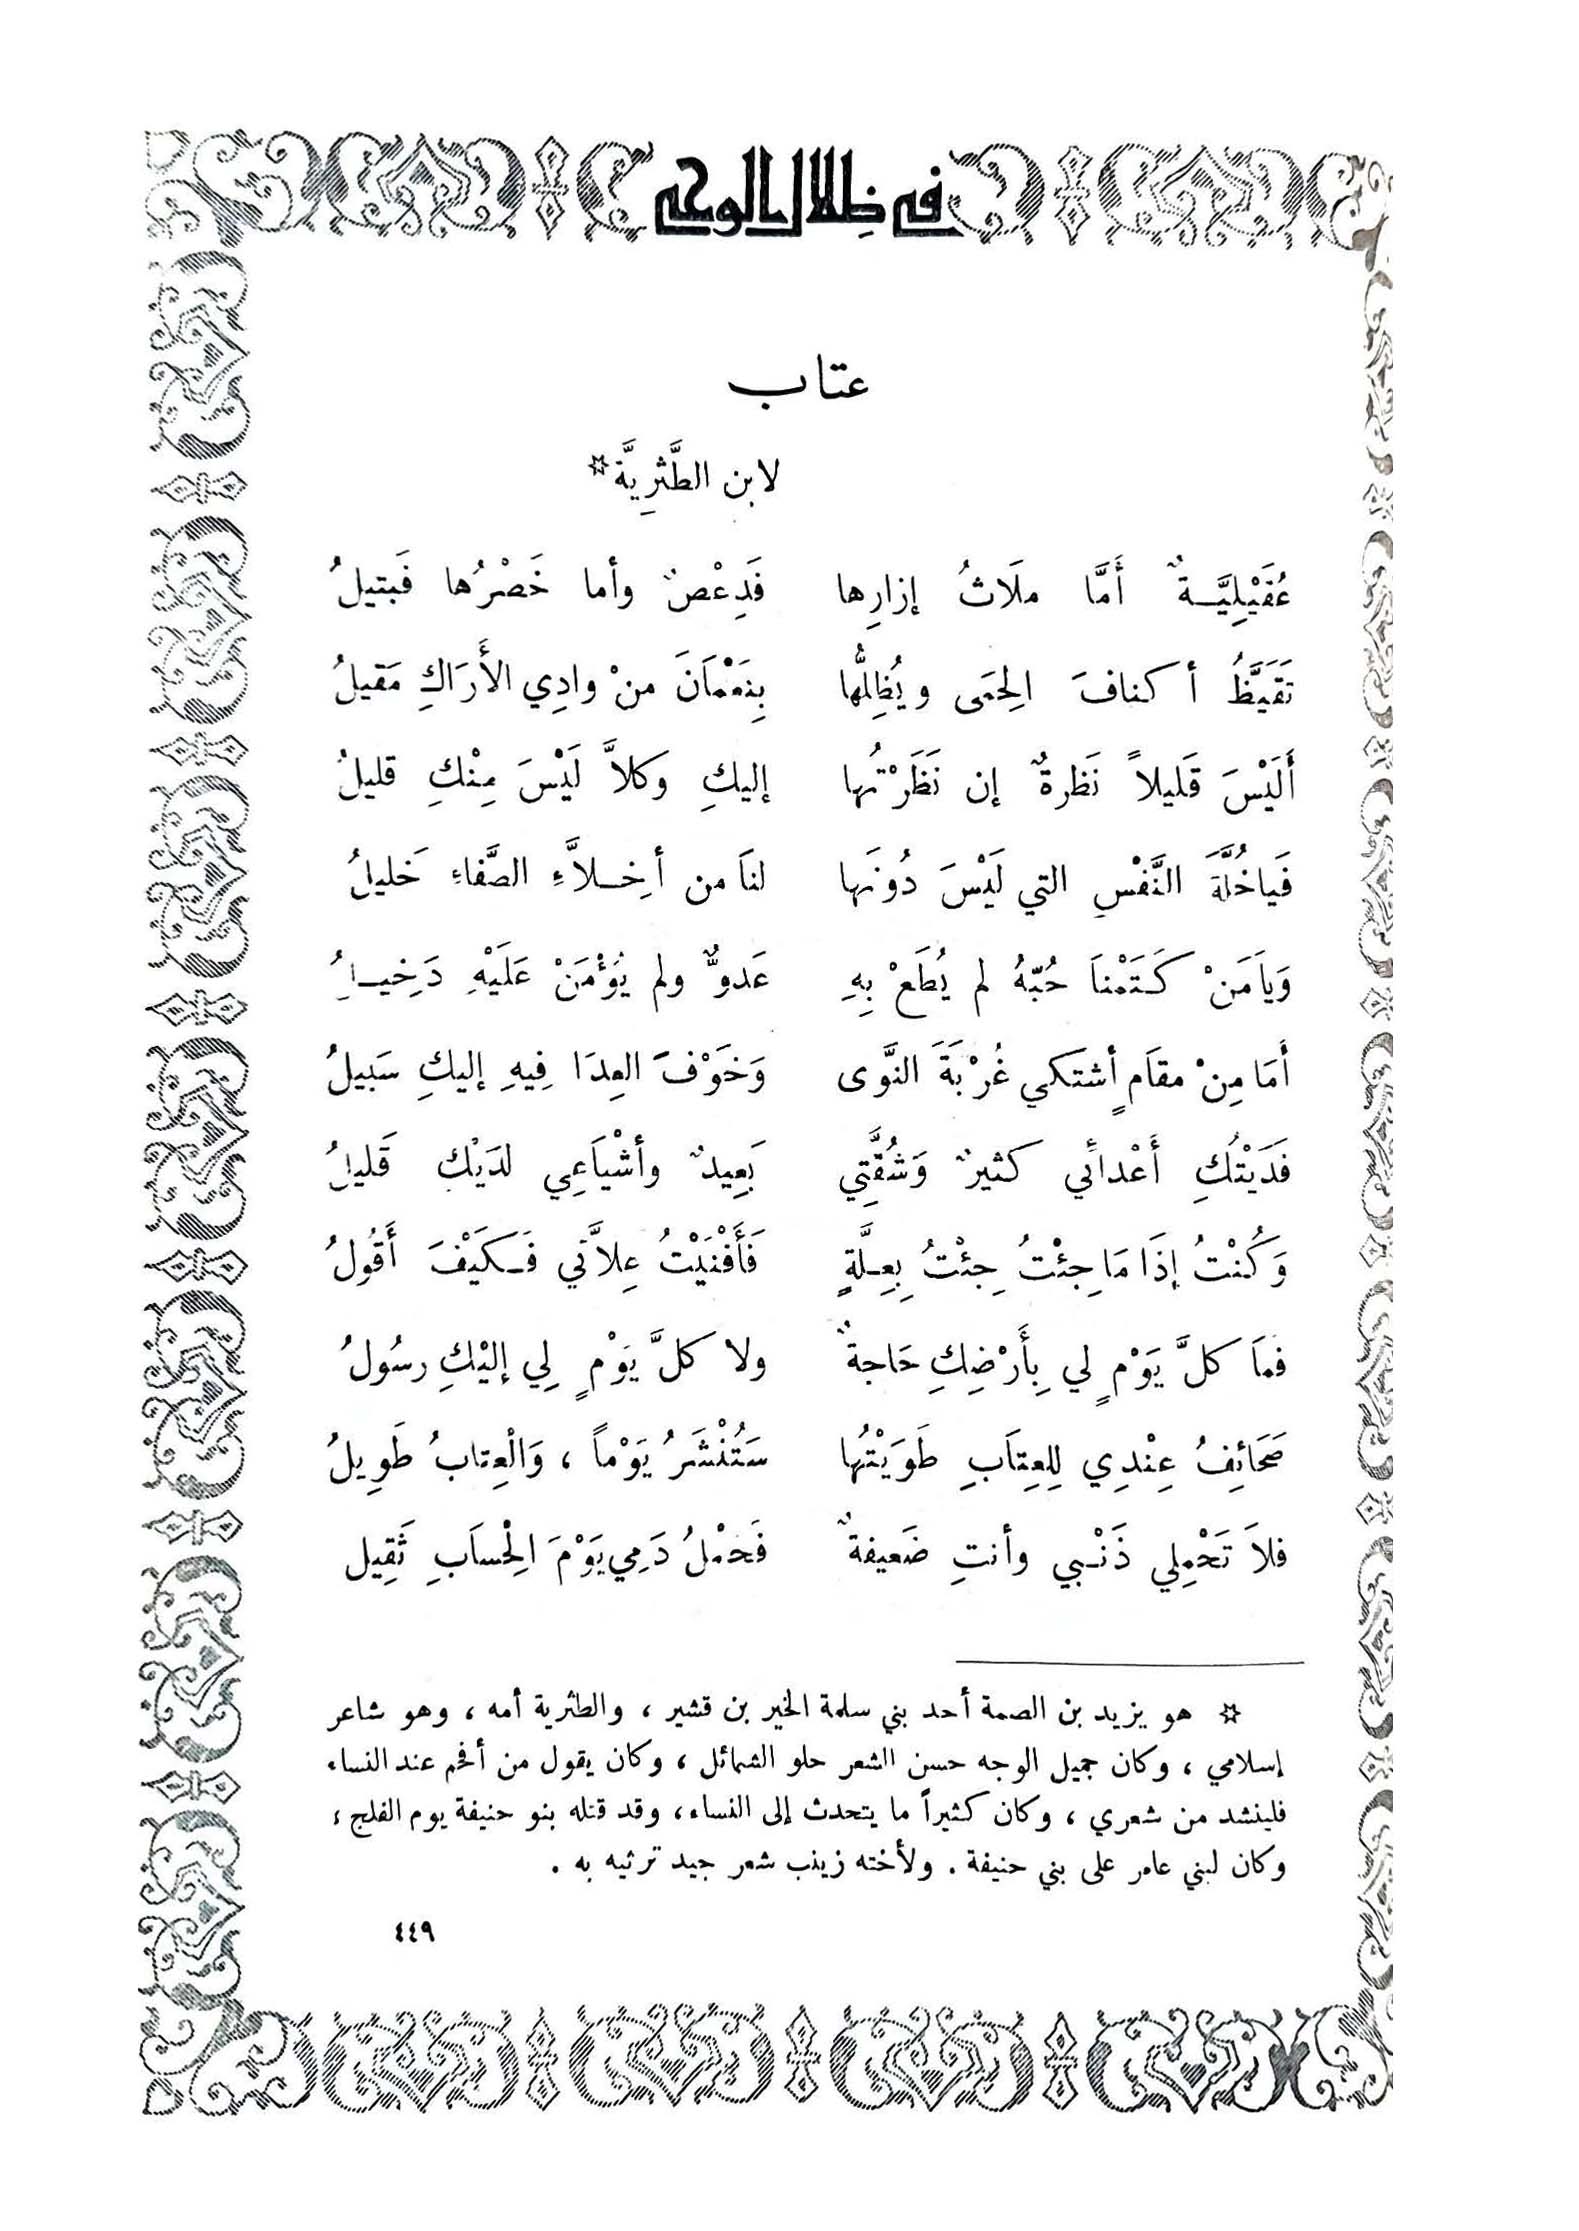 في ظلال الوحي
عتاب
لابن الطَّثرِيَّة*
عُقَيْلِيَّـةٌ أَمَّا ملَاثُ إزارِها فَدِعْصٌ وأما خَصْرُها فَبتيلُ
تَقَيَّظُ أكنافَ الحِمَى ويُظِلُّها بِنَعْمَانَ منْ وادِي الأَرَاكِ مَقيلُ
أَلَيْسَ قَليلاً نَظرةٌ إن نَظَرْتُها إليكِ وكلاَّ لَيْسَ مِنْكِ قليلُ
فَياخُلَّةَ النَّفْسِ التي لَيْسَ دُونَها لنَا من أخِـلاَّءِ الصَّفاءِ خَليلُ
وَيَامَنْ كَتَمْنَا حُبّهُ لم يُطَعْ بِهِ عَدوٌّ ولم يُؤْمَنْ عَلَيْهِ دَخِيـلُ
أَمَا مِنْ مقَامٍ أشتكي غُرْبَةَ النَّوى وَخَوْفَ العِدَا فِيهِ إليكِ سَبيلُ
فَدَيْتُكِ أَعْدائي كثيرٌ وَشُقَّتِي بَعِيدٌ وأشْيَاعِي لدَيْكِ قَليلُ
وَكُنْتُ إذَا مَا جِئْتُ جِئْتُ بِعِـلَّةٍ فَأَفْنَيْتُ عِلاَّتي فَـكَيْفَ أَقُولُ
فمَا كلَّ يَوْمٍ لي بِأَرْضِكِ حَاجةٌ ولا كلَّ يَوْمٍ لِي إلَيْكِ رسُولُ
صَحَائِفُ عِنْدِي لِلعِتَابِ طَوَيْتُها سَتُنْشَرُ يَوْماً ، وَالْعِتابُ طَوِيلُ
فلاَ تَحْمِلي ذَنْـبي وأنتِ ضَعيفةٌ فَحَمْلُ دَمِي يَوْمَ الْحِسَابِ ثَقِيل
* هو يزيد بن الصمة أحد بني سلمة الخير بن قشير ، والطثرية أمه ، وهو شاعر
إسلامي ، وكان جميل الوجه حسن الشعر حلو الشمائل ، وكان يقول من أفحم عند النساء
فلينشد من شعري ، وكان كثيراً ما يتحدث إلى النساء، وقد قتله بنو حنيفة يوم الفلج ،
وكان لبني عامر على بني حنيفة . ولأخته زينب شعر جيد ترثيه به .
٤٤٩